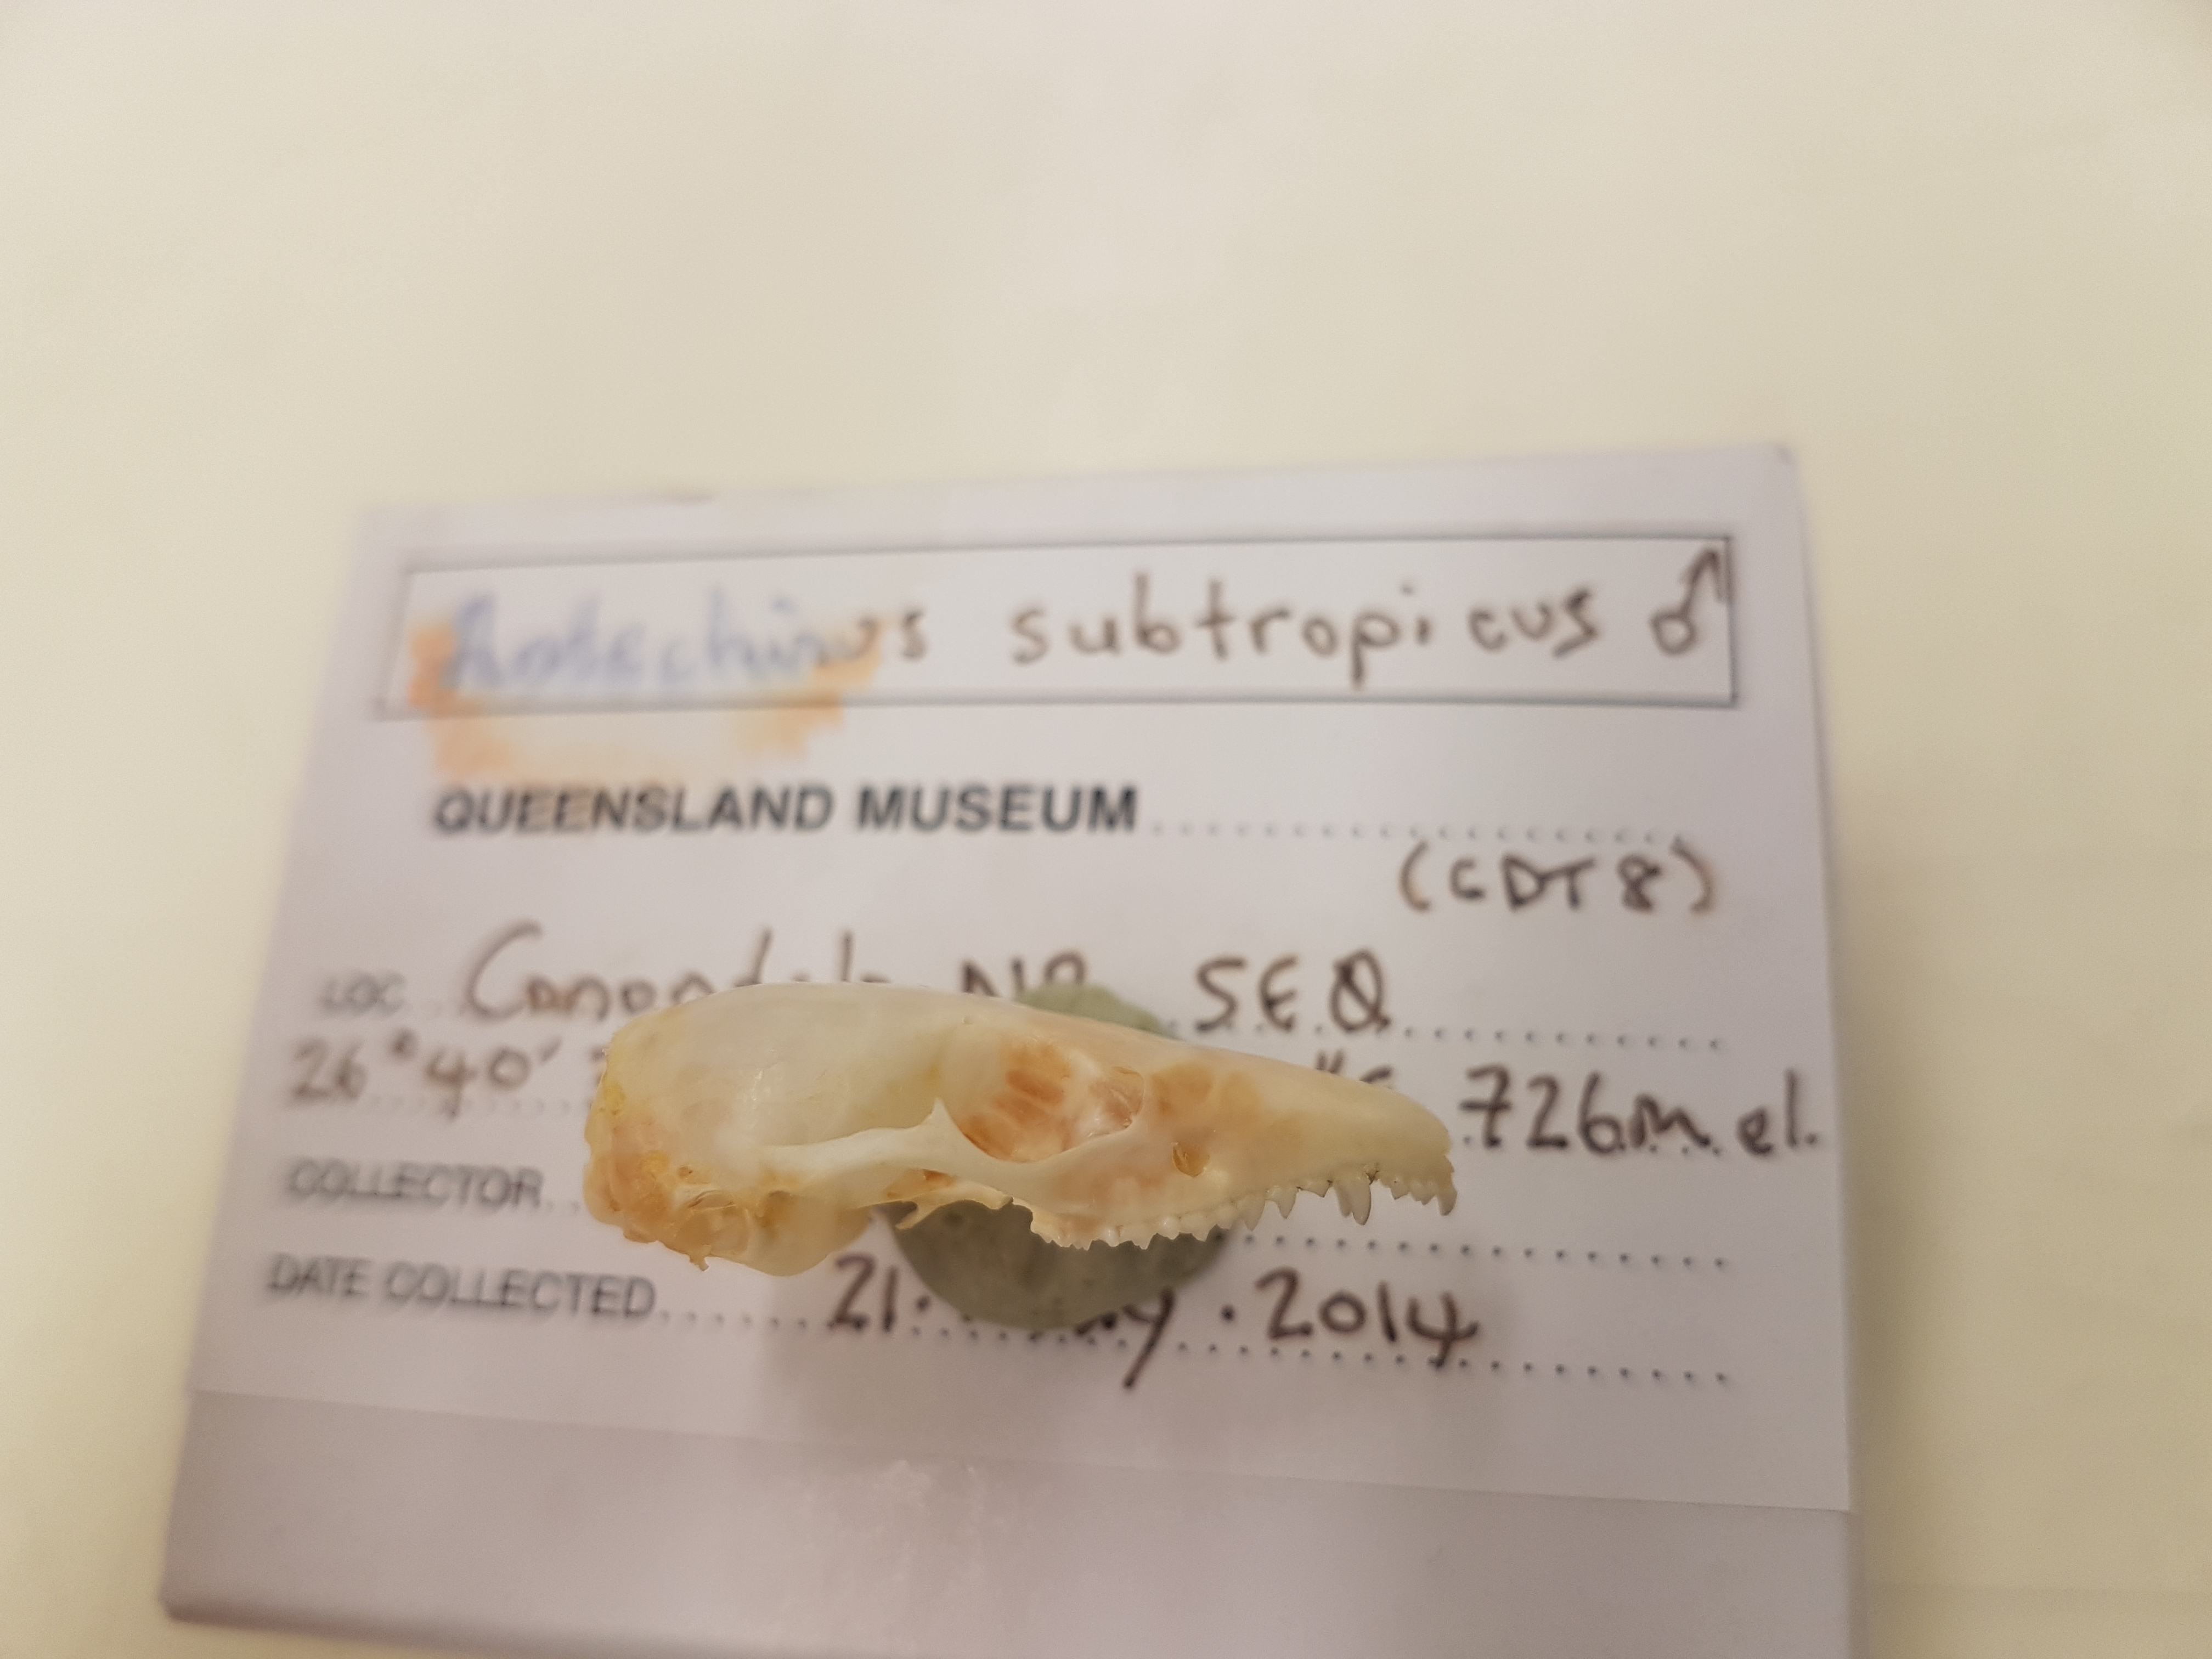 Antechinus subtropicus ♂
QUEENSLAND MUSEUM
(CDT 8)
LOC. SEQ
26° 40' 726m el.
COLLECTOR
DATE COLLECTED 21. . 2014